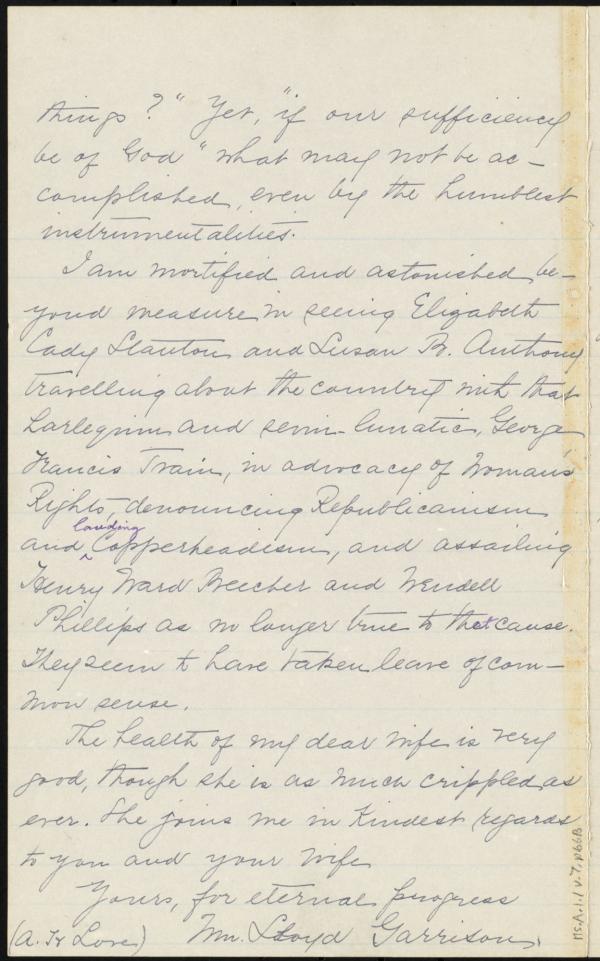 things?" Yet, "if our sufficiency
be of God" what may not be ac-
complished, even by the humblest
instrumentalities.
I am mortified and astonished be-
yond measure in seeing Elizabeth
Cady Stanton and Susan B. Anthony
travelling about the country with that
harlequin and semi-lunatic, George
Francis Train, in advocacy of Woman's
Rights, denouncing Republicanism
lauding
and ^ Copperheadism, and assailing
Henry Ward Beecher and Wendell
Phillips as no longer true to that cause.
They seem to have taken leave of com-
mon sense.
The health of my dear wife is very
good, though she is as much crippled as
ever. She joins me in kindest regards
to you and your wife
Yours, for eternal progress
(A. H Love) Wm. Lloyd Garrison.
Ms.A.1.1 v.7, p66B